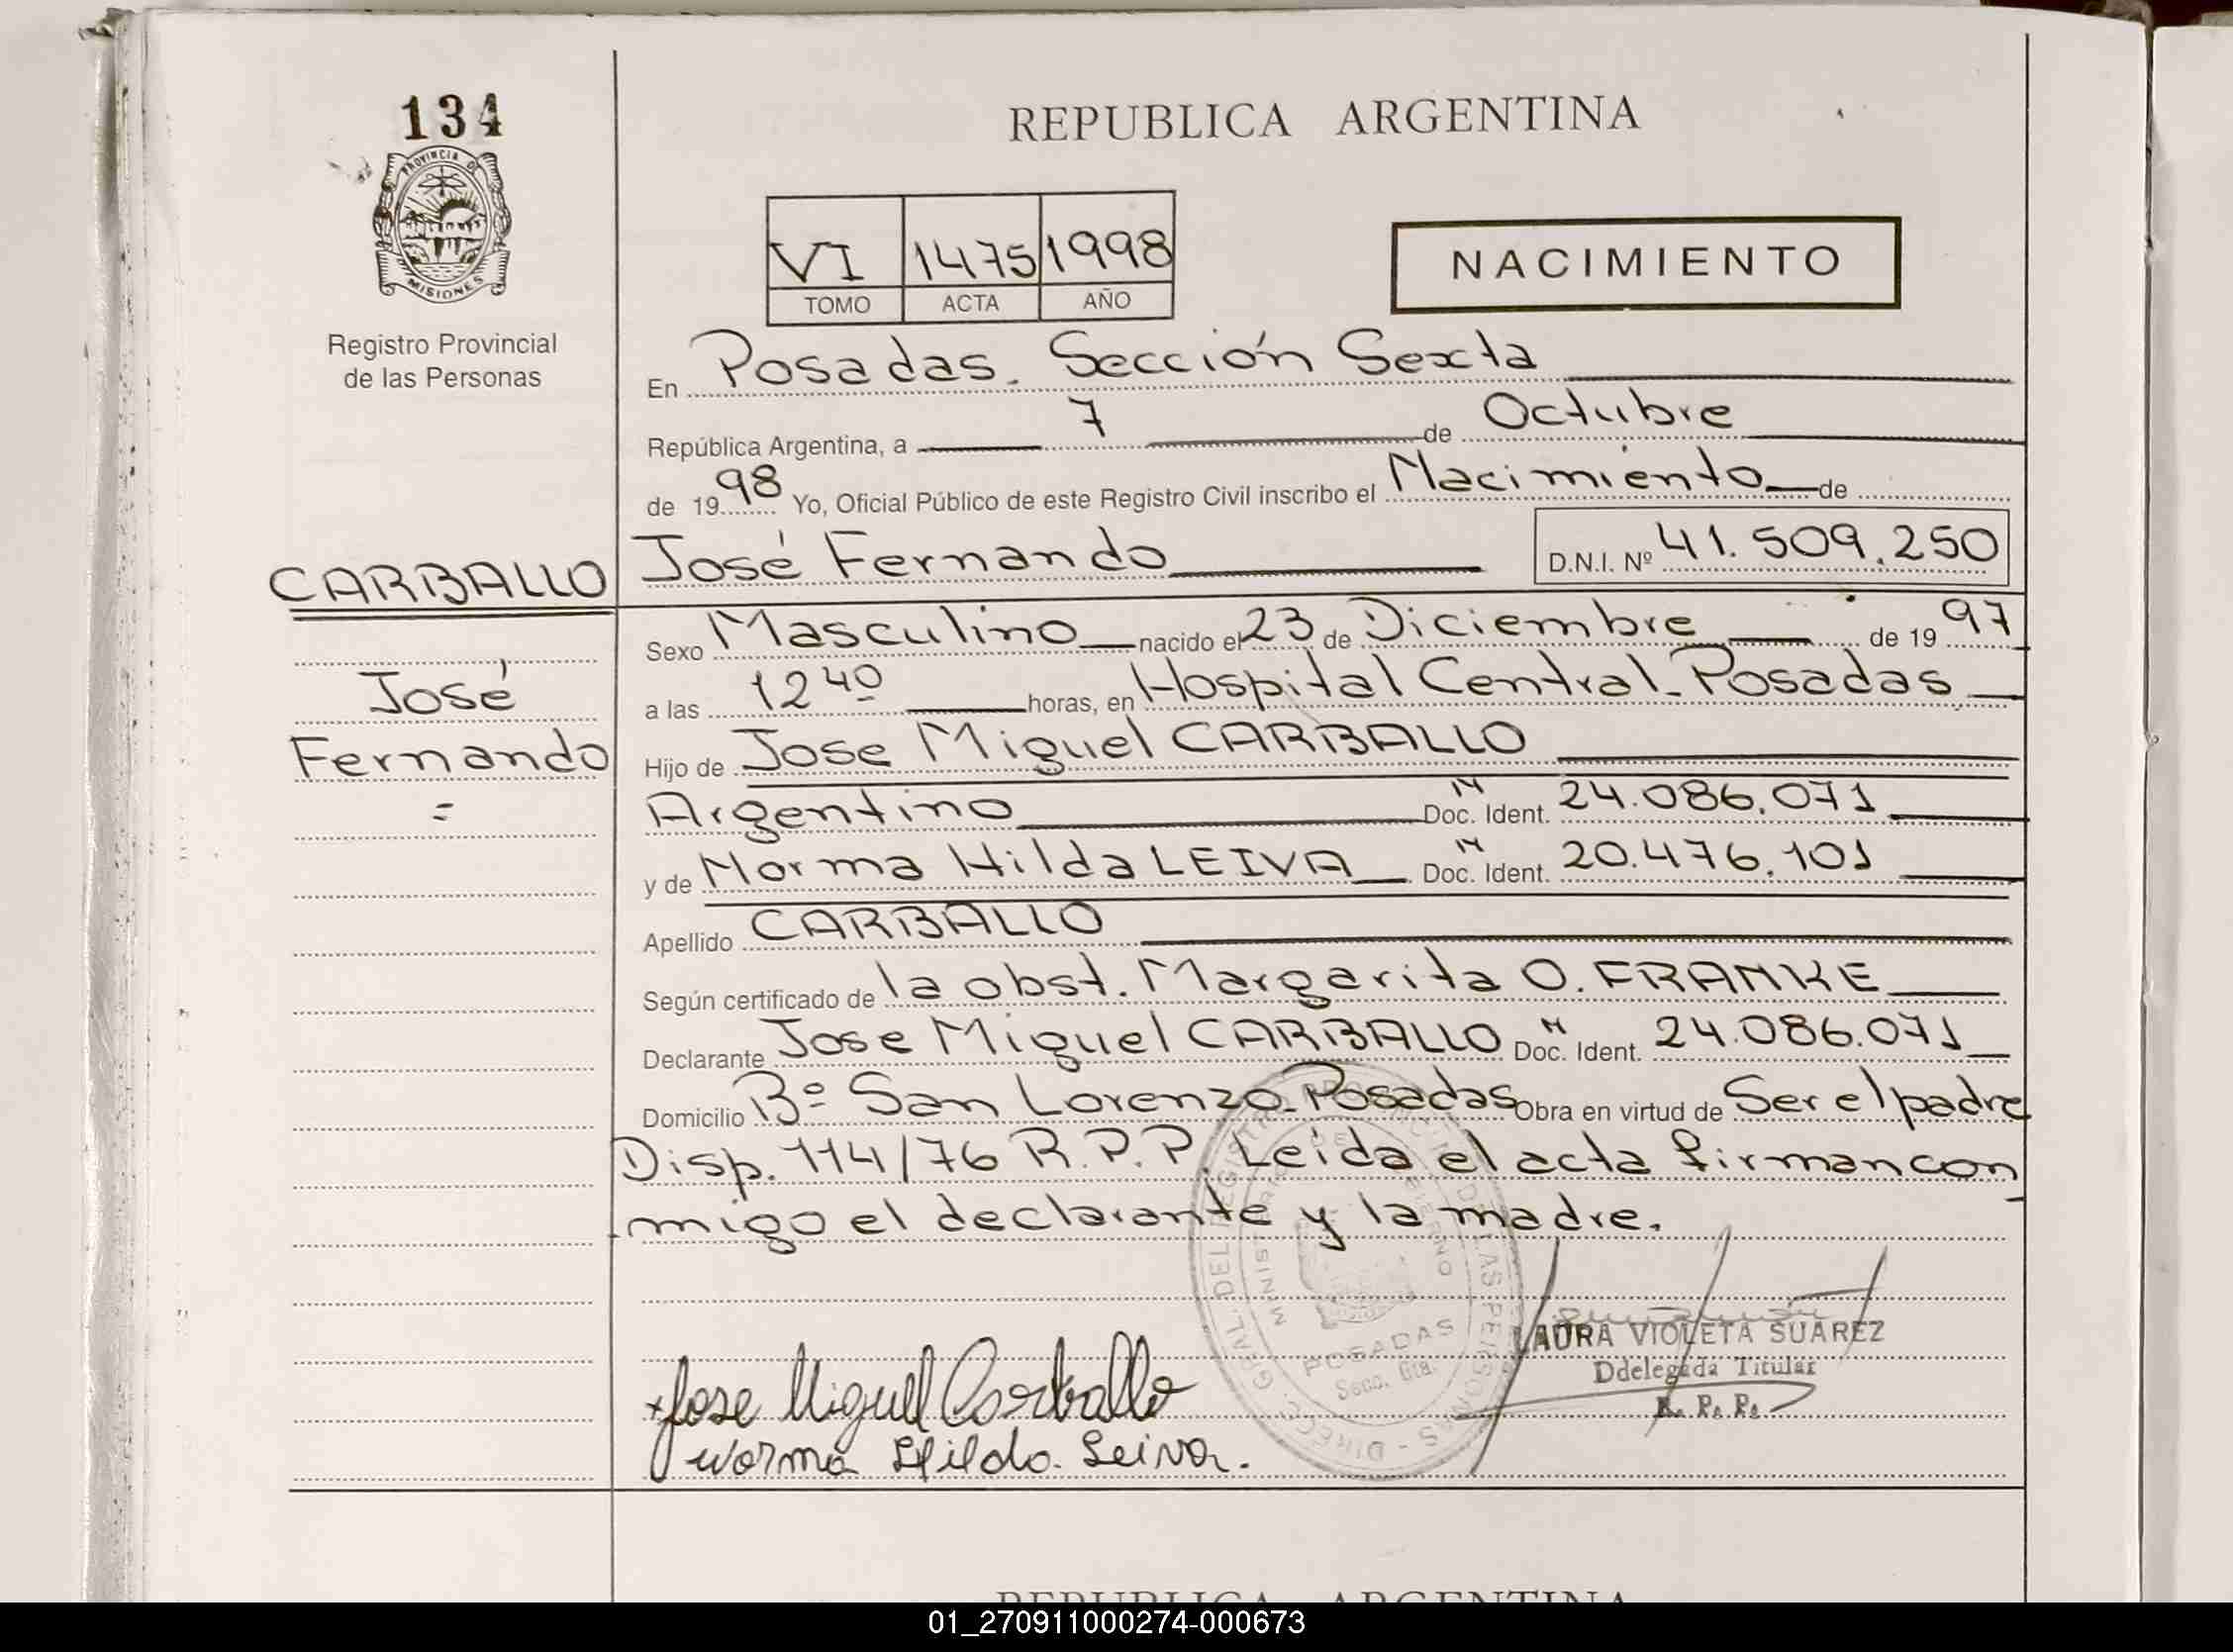 134
PROVINCIA DE
MISIONES
Registro Provincial
de las Personas
REPUBLICA ARGENTINA
VI 1475 1998
TOMO ACTA AÑO
NACIMIENTO
En Posadas. Sección Sexta
República Argentina, a 7 de Octubre
de 1998 Yo, Oficial Público de este Registro Civil inscribo el Nacimiento de
CARBALLO José Fernando D.N.I. Nº 41.509.250
José
Fernando
=
Sexo Masculino nacido el 23 de Diciembre de 1997
a las 12 40 horas, en Hospital Central. Posadas
Hijo de Jose Miguel CARBALLO
Argentino Doc. Ident. N 24.086.071
y de Norma Hilda LEIVA Doc. Ident. N 20.476.101
Apellido CARBALLO
Según certificado de la obst. Margarita O. FRANKE
Declarante Jose Miguel CARBALLO Doc. Ident. N 24.086.071
Domicilio Bº San Lorenzo. Posadas Obra en virtud de Ser el padre
Disp. 114/76 R.P.P. Leida el acta firman con
migo el declarante y la madre.
DIRECC. GRAL. DEL REGISTRO PROVINCIAL DE LAS PERSONAS -
MINISTERIO DE GOBIERNO
POSADAS
Secc. 6ta.
LAURA VIOLETA SUAREZ
Ddelegada Titular
R. P. P.
x Jose Miguel Carballo
Norma Hilda Leiva.
REPUBLICA ARGENTINA
01_270911000274-000673